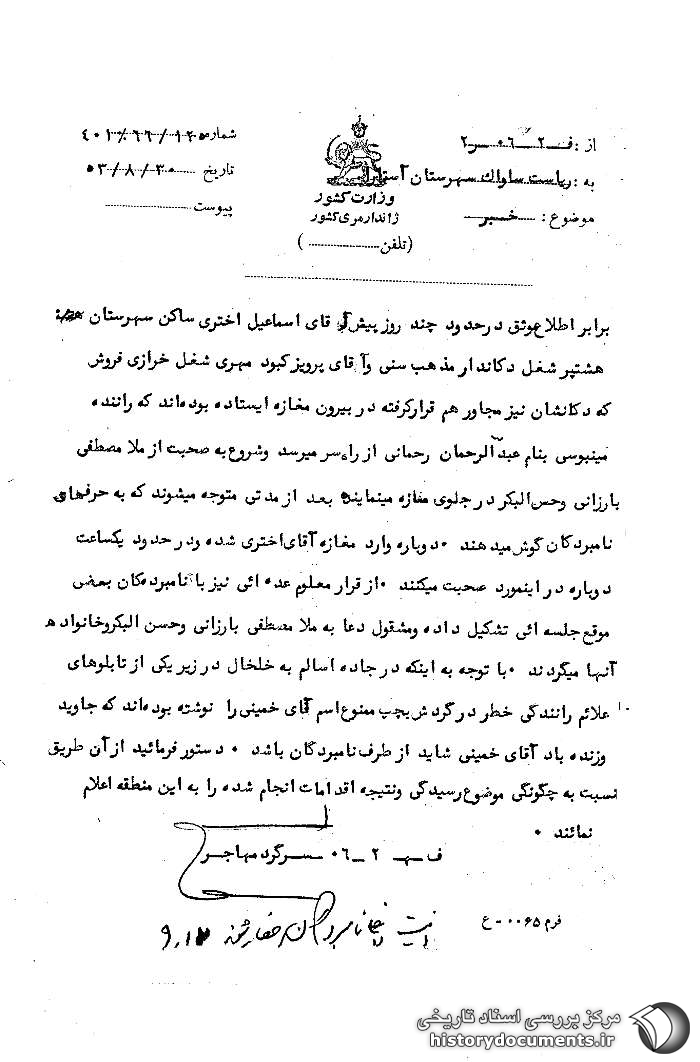 از: ف ۲ ـ ۰۶ ـ ر۲
به: ریاست ساواك شهرستان آستارا
موضوع: خبر
وزارت کشور
ژاندارمری کشور
(تلفن .......... )
شماره ۴۰۱/۶۶/۱۲۰۵
تاریخ ۵۳/۸/۳۰
پیوست
برابر اطلاع موثق در حدود چند روز پیش آقای اسماعیل اختری ساکن شهرستان
هشتپر شغل دکاندار مذهب سنی وآقای پرویز کبود مهری شغل خرازی فروش
که دکانشان نیز مجاور هم قرارگرفته در بیرون مغازه ایستاده بوده‌اند که راننده
مینی‌بوسی بنام عبدالرحمان رحمانی از راه سر میرسد وشروع به صحبت از ملا مصطفی
بارزانی وحسن البکر در جلوی مغازه مینمایند بعد از مدتی متوجه میشوند که به حرفهای
نامبردگان گوش میدهند ۰ دوباره وارد مغازه آقای اختری شده ودر حدود یکساعت
دوباره در اینمورد صحبت میکنند ۰ از قرار معلوم عده ائی نیز با نامبردگان بعضی
موقع جلسه ائی تشکیل داده ومشقول دعا به ملا مصطفی بارزانی وحسن البکر وخانواده
آنها میگردند ۰ با توجه به اینکه در جاده اسالم به خلخال در زیر یکی از تابلوهای
علائم رانندگی خطر در گردش بچپ ممنوع اسم آقای خمینی را نوشته بوده‌اند که جاوید
وزنده باد آقای خمینی شاید از طرف نامبردگان باشد ۰ دستور فرمائید از آن طریق
نسبت به چگونگی موضوع رسیدگی ونتیجه اقدامات انجام شده را به این منطقه اعلام
نمائند ۰
ف ـ ۲ ـ ۰۶ سرگرد مهاجر
فرم ۰۰۶۵ - ع
۹.۱۲
مرکز بررسی اسناد تاریخی
historydocuments.ir